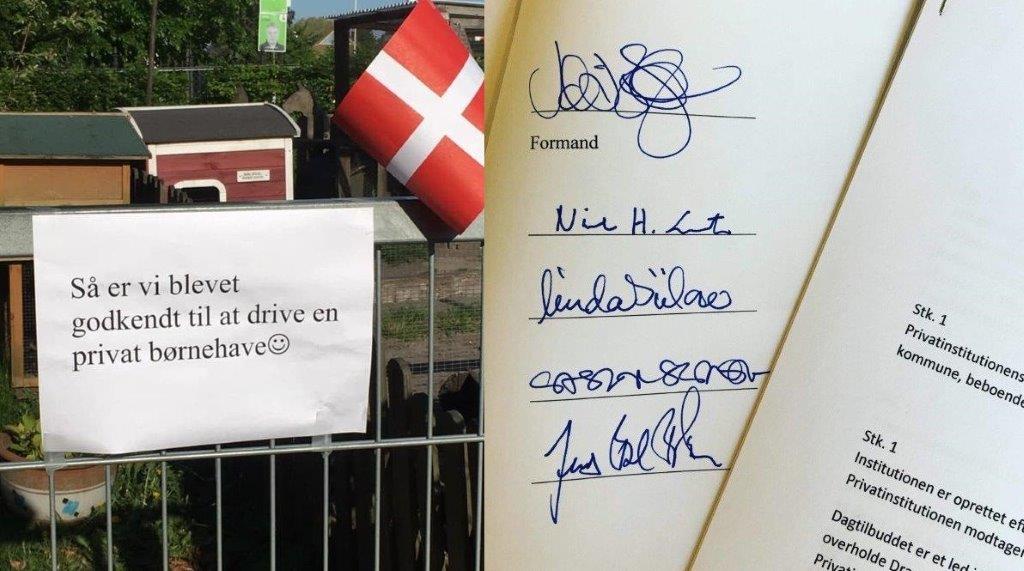 Så er vi blevet
godkendt til at drive en
privat børnehave☺
Formand
H.
Linda
Jens
Stk. 1
Privatinstitutionens
kommune, beboende
Stk. 1
Institutionen er oprettet ef
Privatinstitutionen modtager
Dagtilbuddet er et led i
overholde Dra
Privati